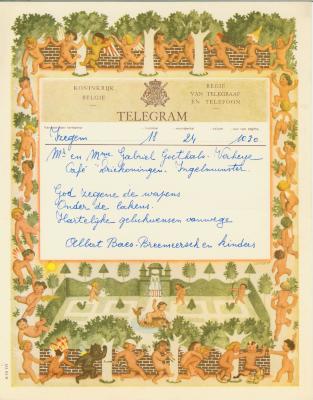 KONINKRIJK
BELGIË
REGIE
VAN TELEGRAAF
EN TELEFOON
TELEGRAM
Izegem 11 24 1030
Mr en Mme Gabriel Goethals-Verheye
Café Driekoningen Ingelmunster
God zegene de wapens
Onder de lakens.
Hartelijke gelukwensen vanwege
Albert Baes-Breemeersch en kinders